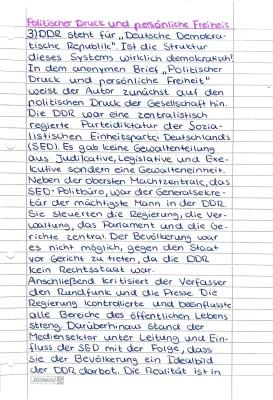 Politischer Druck und persönliche Freiheit
3) DDR steht für „Deutsche Demokra-
tische Republik". Ist die Struktur
dieses Systems wirklich demokratisch?
In dem anonymen Brief „Politischer
Druck und persönliche Freiheit"
weist der Autor zunächst auf den
politischen Druck der Gesellschaft hin.
Die DDR war eine zentralistisch
regierte Parteidiktatur der Sozia-
listischen Einheitspartei Deutschlands
(SED). Es gab keine Gewaltenteilung
aus Judikative, Legislative und Exe-
kutive sondern eine Gewalteneinheit.
Neben der obersten Machtzentrale, das
SED-Politbüro, war der Generalsekre-
tär der mächtigste Mann in der DDR.
Sie steuerten die Regierung, die Ver-
waltung, das Parlament und die Ge-
richte zentral. Der Bevölkerung war
es nicht möglich, gegen den Staat
vor Gericht zu treten, da die DDR
kein Rechtsstaat war.
Anschließend kritisiert der Verfasser
den Rundfunk und die Presse. Die
Regierung kontrollierte und beeinflusste
alle Bereiche des öffentlichen Lebens
streng. Darüberhinaus stand der
Mediensektor unter Leitung und Ein-
fluss der SED mit der Folge, dass
sie der Bevölkerung ein Idealbild
der DDR darbot. Die Realität ist in